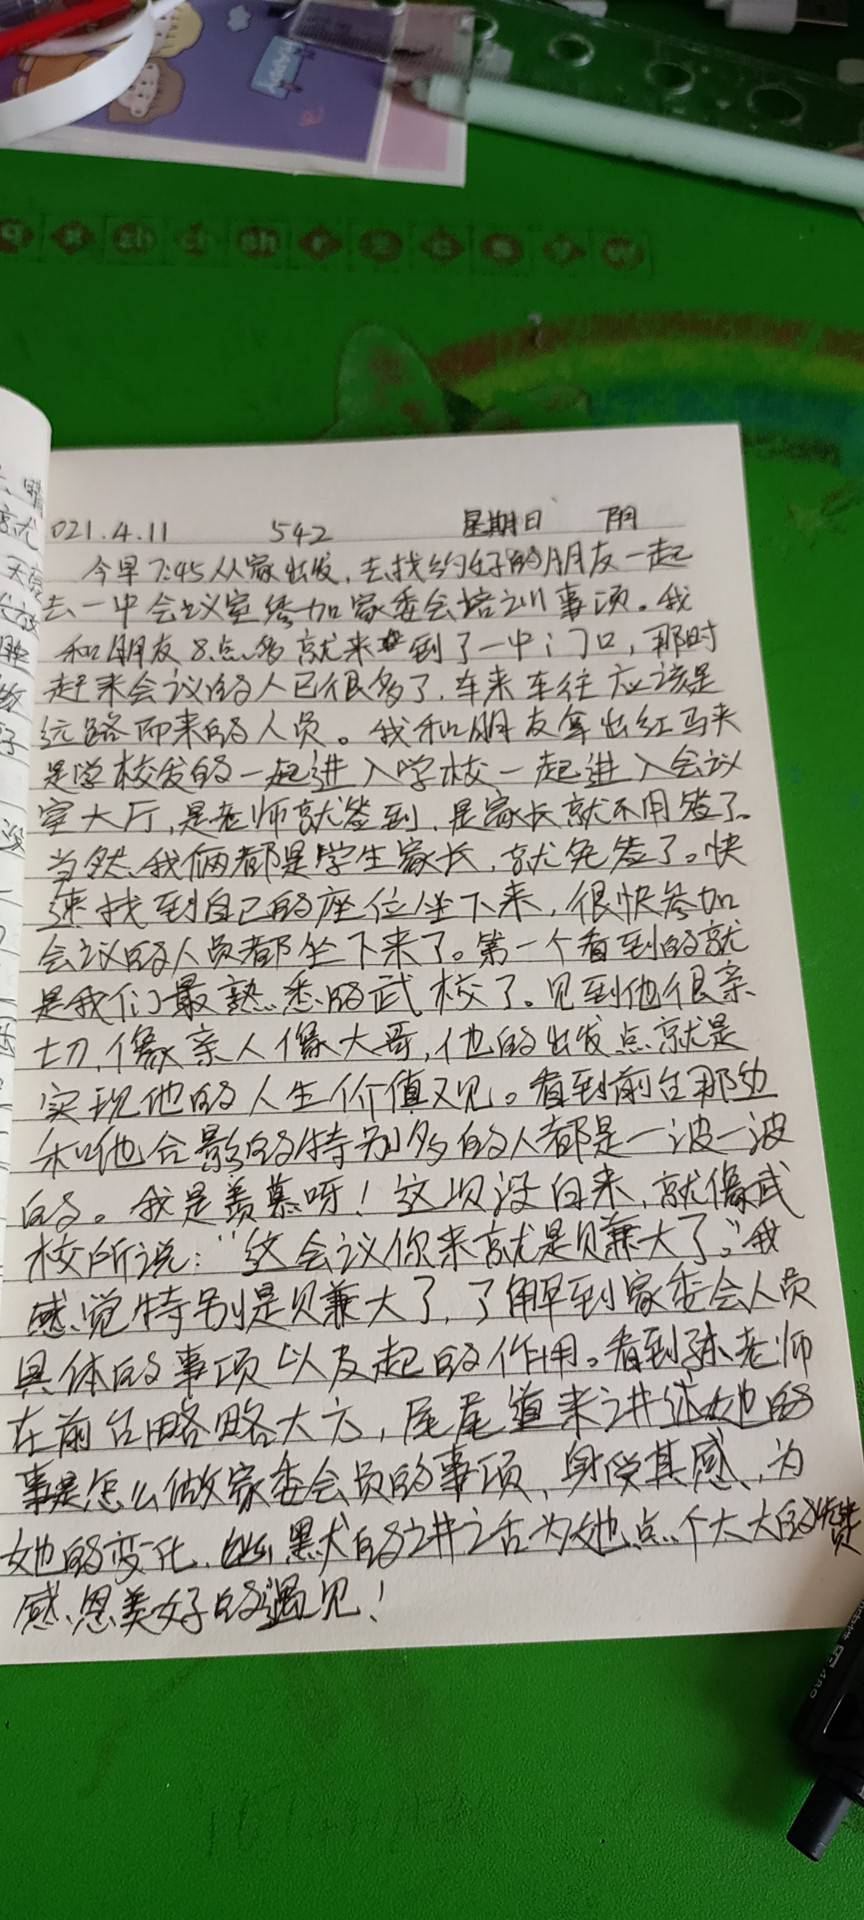 HAPPY
q x zh ch sh r z c s y w
021.4.11 542 星期日 阴
今早7:45从家出发,去找约好的朋友一起
去一中会议室参加家委会培训事项。我
和朋友8点多就来到了一中门口,那时
起来会议的人已很多了,车来车往应该是
远路而来的人员。我和朋友拿出红马夹
是学校发的一起进入学校一起进入会议
室大厅,是老师就签到,是家长就不用签了。
当然,我俩都是学生家长,就免签了。快
速找到自己的座位坐下来,很快参加
会议的人员都坐下来了。第一个看到的就
是我们最熟悉的武校了。见到他很亲
切,像亲人像大哥,他的出发点就是
实现他的人生价值观。看到前台那边
和他合影的特别多的人都是一波一波
的。我是羡慕呀!这次没白来,就像武
校所说:“这会议你来就是赚大了。”我
感觉特别是赚大了,了解到家委会人员
具体的事项以及起的作用。看到孙老师
在前台略略大方,尾尾道来讲述她的
事是怎么做家委会员的事项,身受其感,为
她的变化,黑犬的讲之舌为她点个大大的赞
感恩美好的遇见!